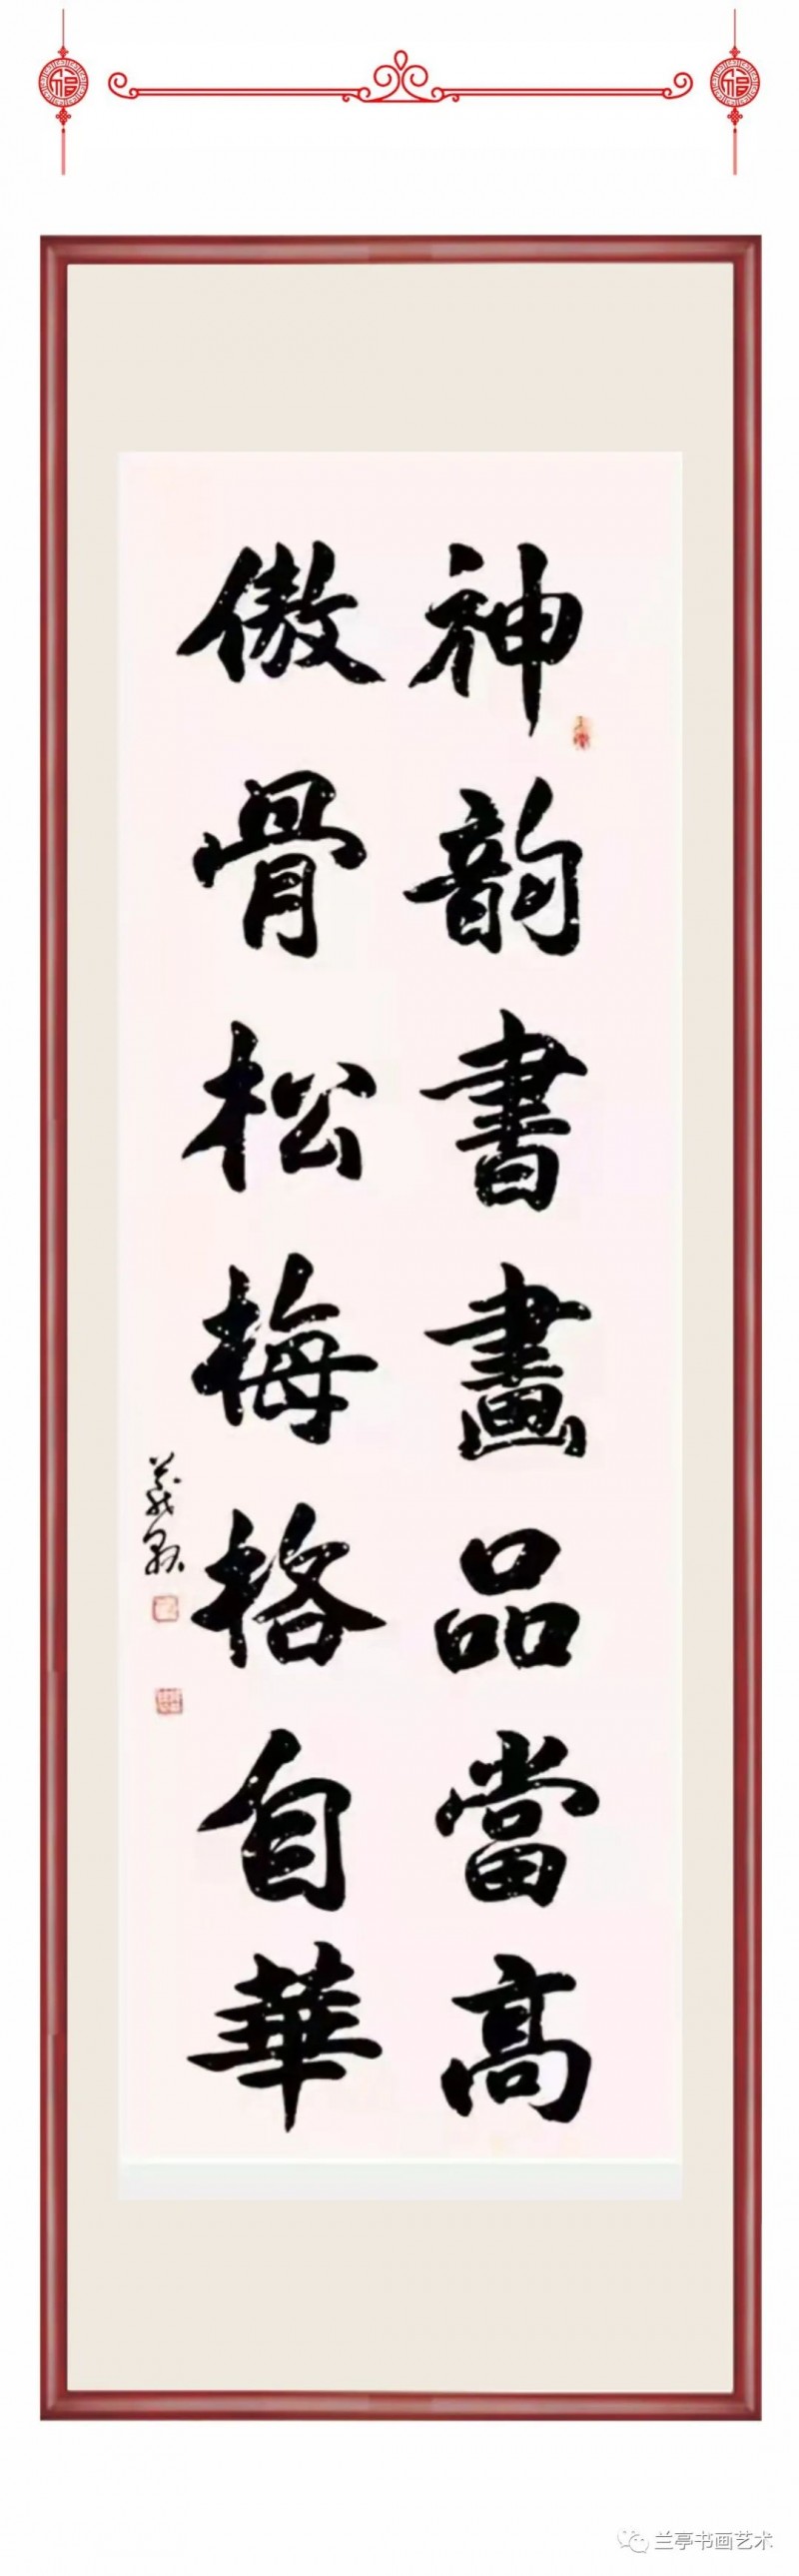 福
福
神韵書畫品當高
傲骨松梅格自華
兰亭书画艺术